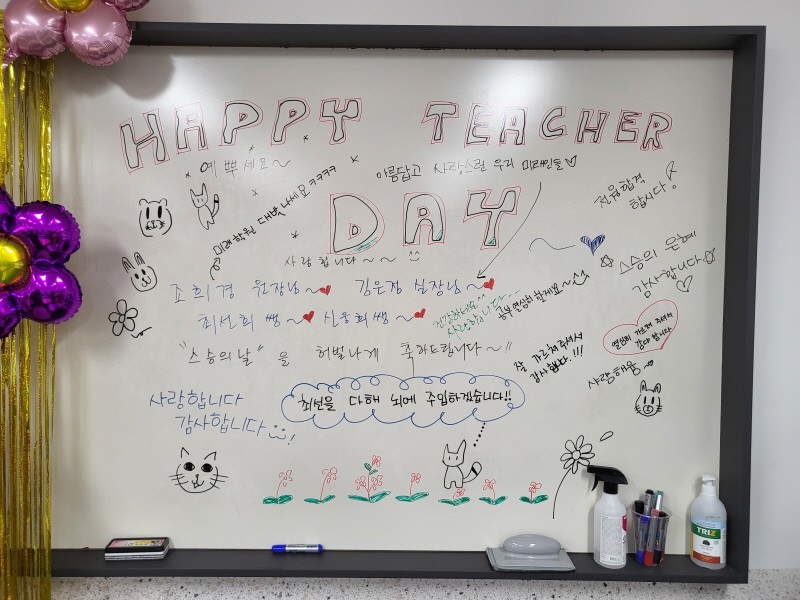 HAPPY TEACHER
예쁘세요~
아름답고 사랑스런 우리 미래인들
미래학원 대박나세요 ㅋㅋㅋㅋ
DAY
전원합격
합시다!
사랑합니다~~
스승의 은혜
감사합니다
조희경 원장님~ 김은정 실장님~
최선희 쌤~ 신웅희쌤~
공부열심히 할게요~
"스승의날" 을 허벌나게 축하드립니다~!!
잘 가르쳐주셔서
감사합니다.!!!
열심히 가르쳐 주셔서
감사 합니다
사랑해용~
사랑합니다
감사합니다!
최선을 다해 뇌에 주입하겠습니다!!
TRIZ